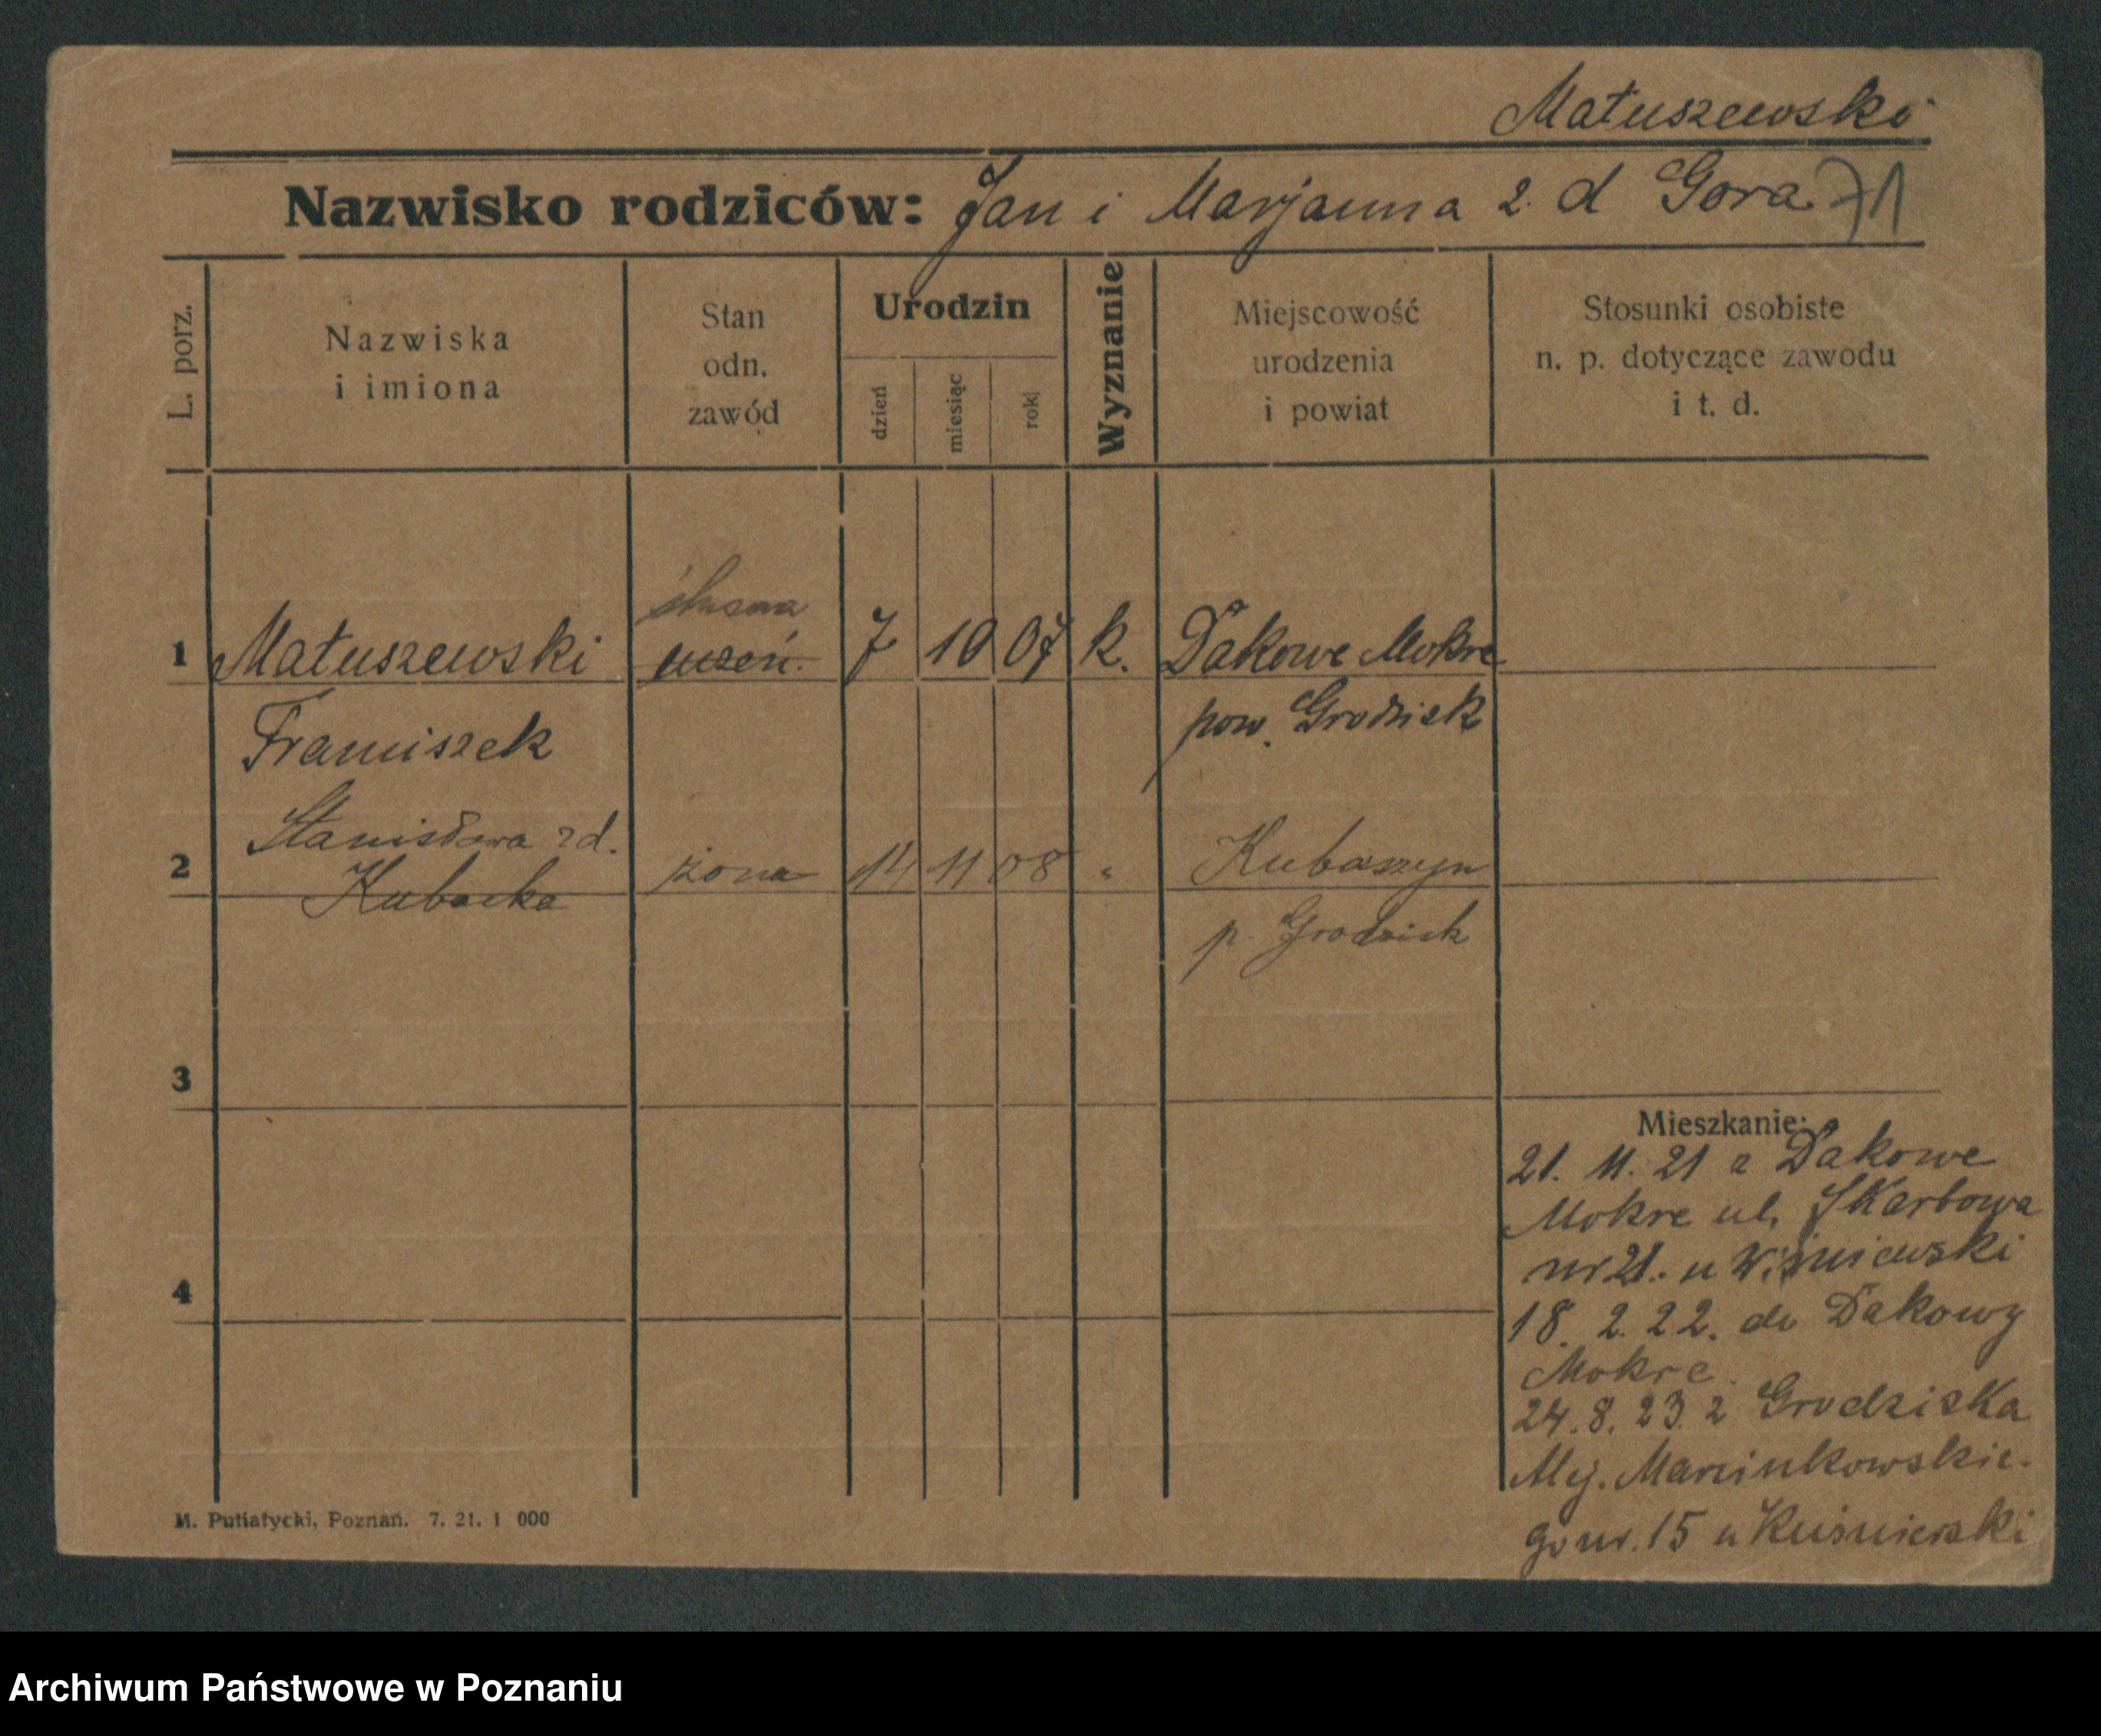 Matuszewski
Nazwisko rodziców: Jan i Marjanna z. d Gora 71
L. porz.
Nazwiska
i imiona
Stan
odn.
zawód
Urodzin
dzień
miesiąc
rok
Wyznanie
Miejscowość
urodzenia
i powiat
Stosunki osobiste
n. p. dotyczące zawodu
i t. d.
1 Matuszewski uczeń. 7 10 07 k. Dakowe Mokre
Franciszek pow. Grodzisk
Stanisława zd.
2 Kubacka żona 14 11 08 " Kubaszyn
p. Grodzisk
3
4
Mieszkanie:
21. 11. 21 z Dakowe
Mokre ul. Skarbowa
nr 21. u Wiśniewski
18. 2. 22. do Dakowy
Mokre.
24. 8. 23. z Grodziska
Marcinkowskie-
go nr. 15 u Kuśnierski
M. Putiatycki, Poznań. 7. 21. 1 000
Archiwum Państwowe w Poznaniu